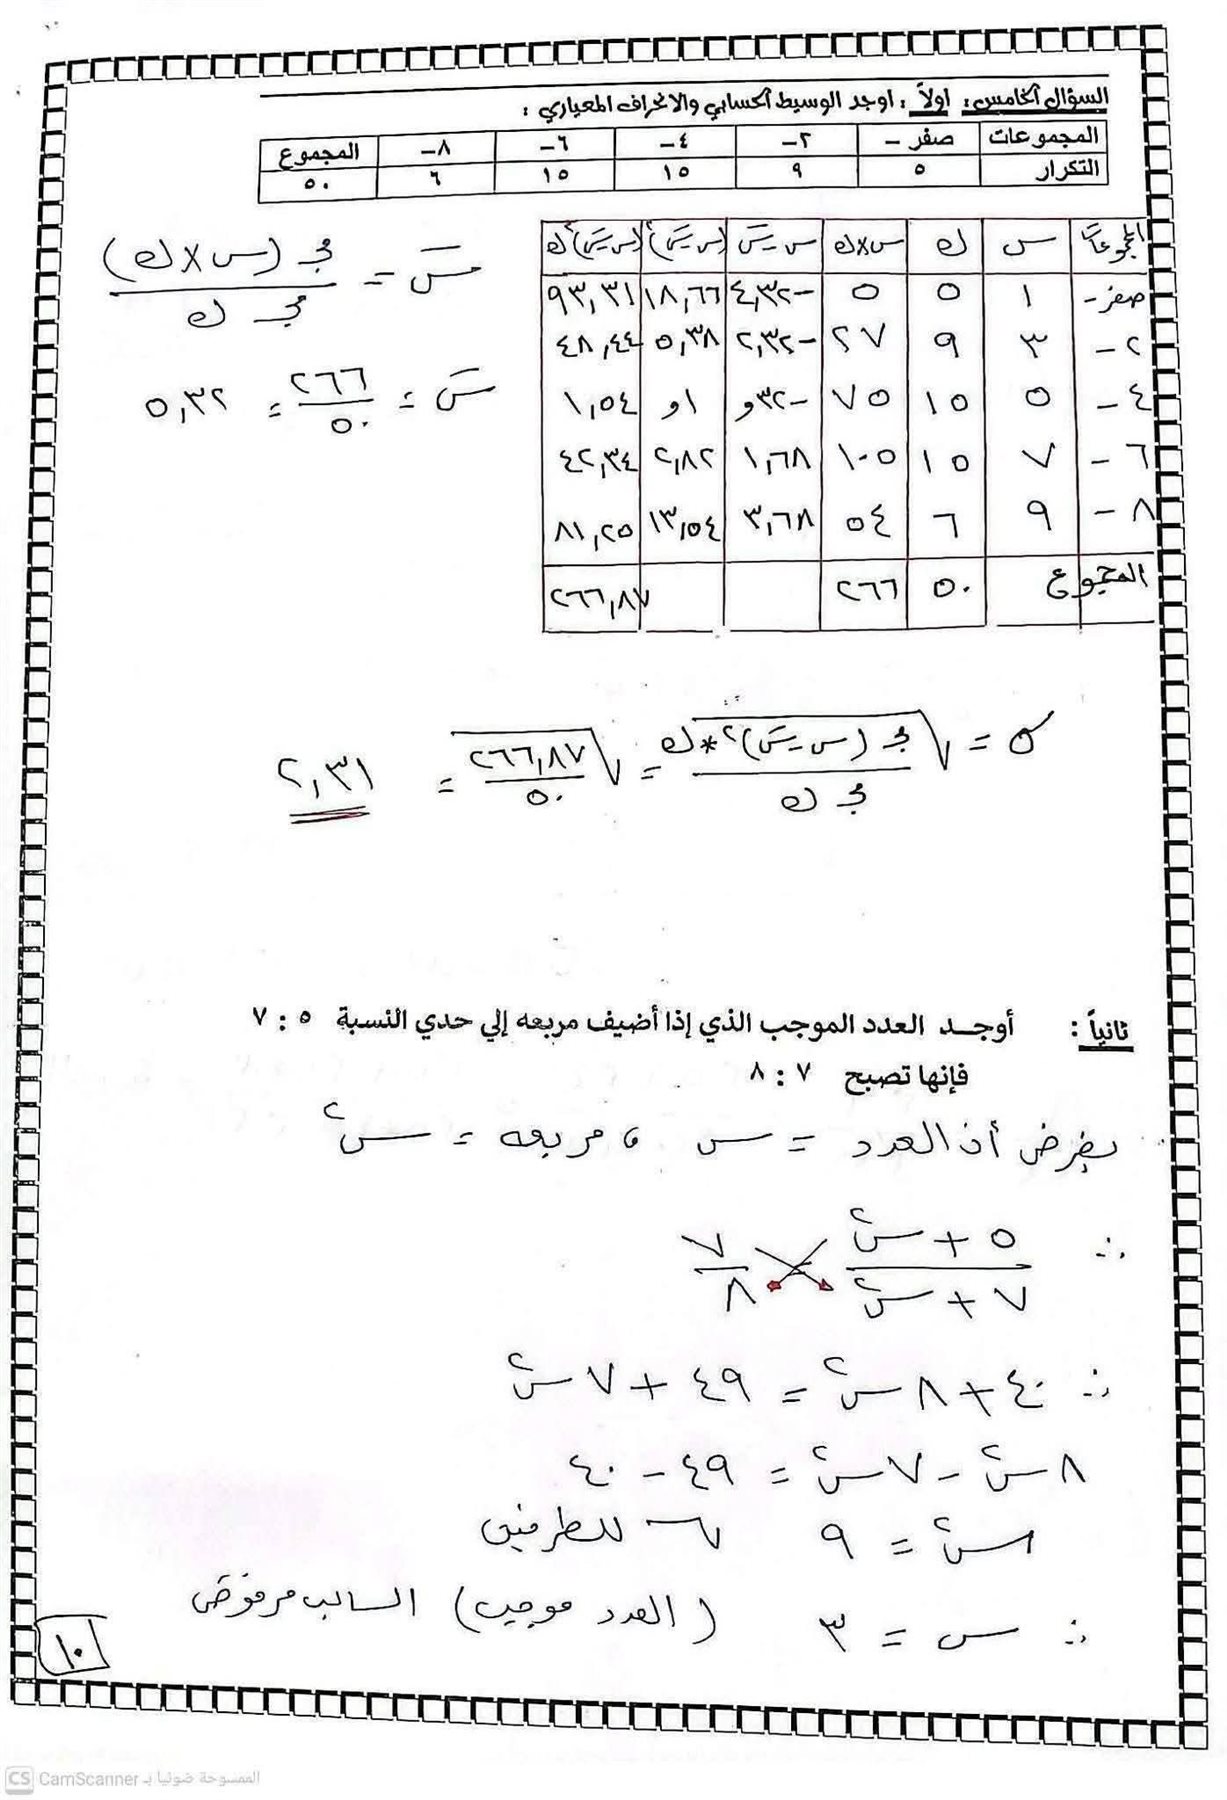 السؤال الخامس: اولاً : اوجد الوسيط الحسابي والانحراف المعياري :
المجموعات صفر – ٢– ٤– ٦– ٨– المجموع
التكرار ٥ ٩ ١٥ ١٥ ٦ ٥٠
المجموعات س ك س×ك س-سَ (س-سَ)٢ (س-سَ)٢ك
صفر- ١ ٥ ٥ -٤,٣٢ ١٨,٦٦ ٩٣,٣١
٢- ٣ ٩ ٢٧ -٢,٣٢ ٥,٣٨ ٤٨,٤٤
٤- ٥ ١٥ ٧٥ -٣٢و ١و ١,٥٤
٦- ٧ ١٥ ١٠٥ ١,٦٨ ٢,٨٢ ٤٢,٣٤
٨- ٩ ٦ ٥٤ ٣,٦٨ ١٣,٥٤ ٨١,٢٥
المجموع ٥٠ ٢٦٦ ٢٦٦,٨٧
سَ = مجـ (س×ك) / مجـ ك
سَ = ٢٦٦/٥٠ = ٥,٣٢
σ = √(مجـ (س-سَ)٢*ك / مجـ ك) = √(٢٦٦,٨٧/٥٠) = ٢,٣١
ثانياً : أوجـد العدد الموجب الذي إذا أضيف مربعه إلي حدي النسبة ٥ : ٧
فإنها تصبح ٧ : ٨
بفرض أن العدد = س ، مربعه = س٢
∴ (٥ + س٢)/(٧ + س٢) = ٧/٨
∴ ٤٠ + ٨س٢ = ٤٩ + ٧س٢
٨س٢ - ٧س٢ = ٤٩ - ٤٠
س٢ = ٩ √ للطرفين
∴ س = ٣ (العدد موجب) السالب مرفوض
١٠
CS CamScanner الممسوحة ضوئيا بـ